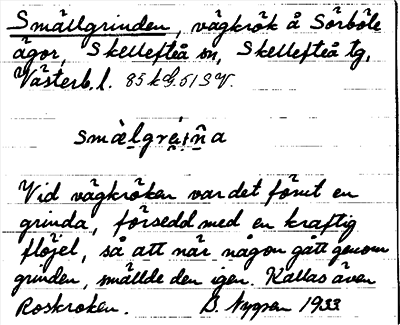 Smällgrinden, vägkrök å Sörböle
ägor, Skellefteå sn, Skellefteå tg,
Västerb. l.
smälgräina
Vid vägkröken var det förut en
grinda, försedd med en kraftig
flöjel, så att när någon gått genom
grinden, smällde den igen. Kallas även
Roskroken. D. Nygren 1933